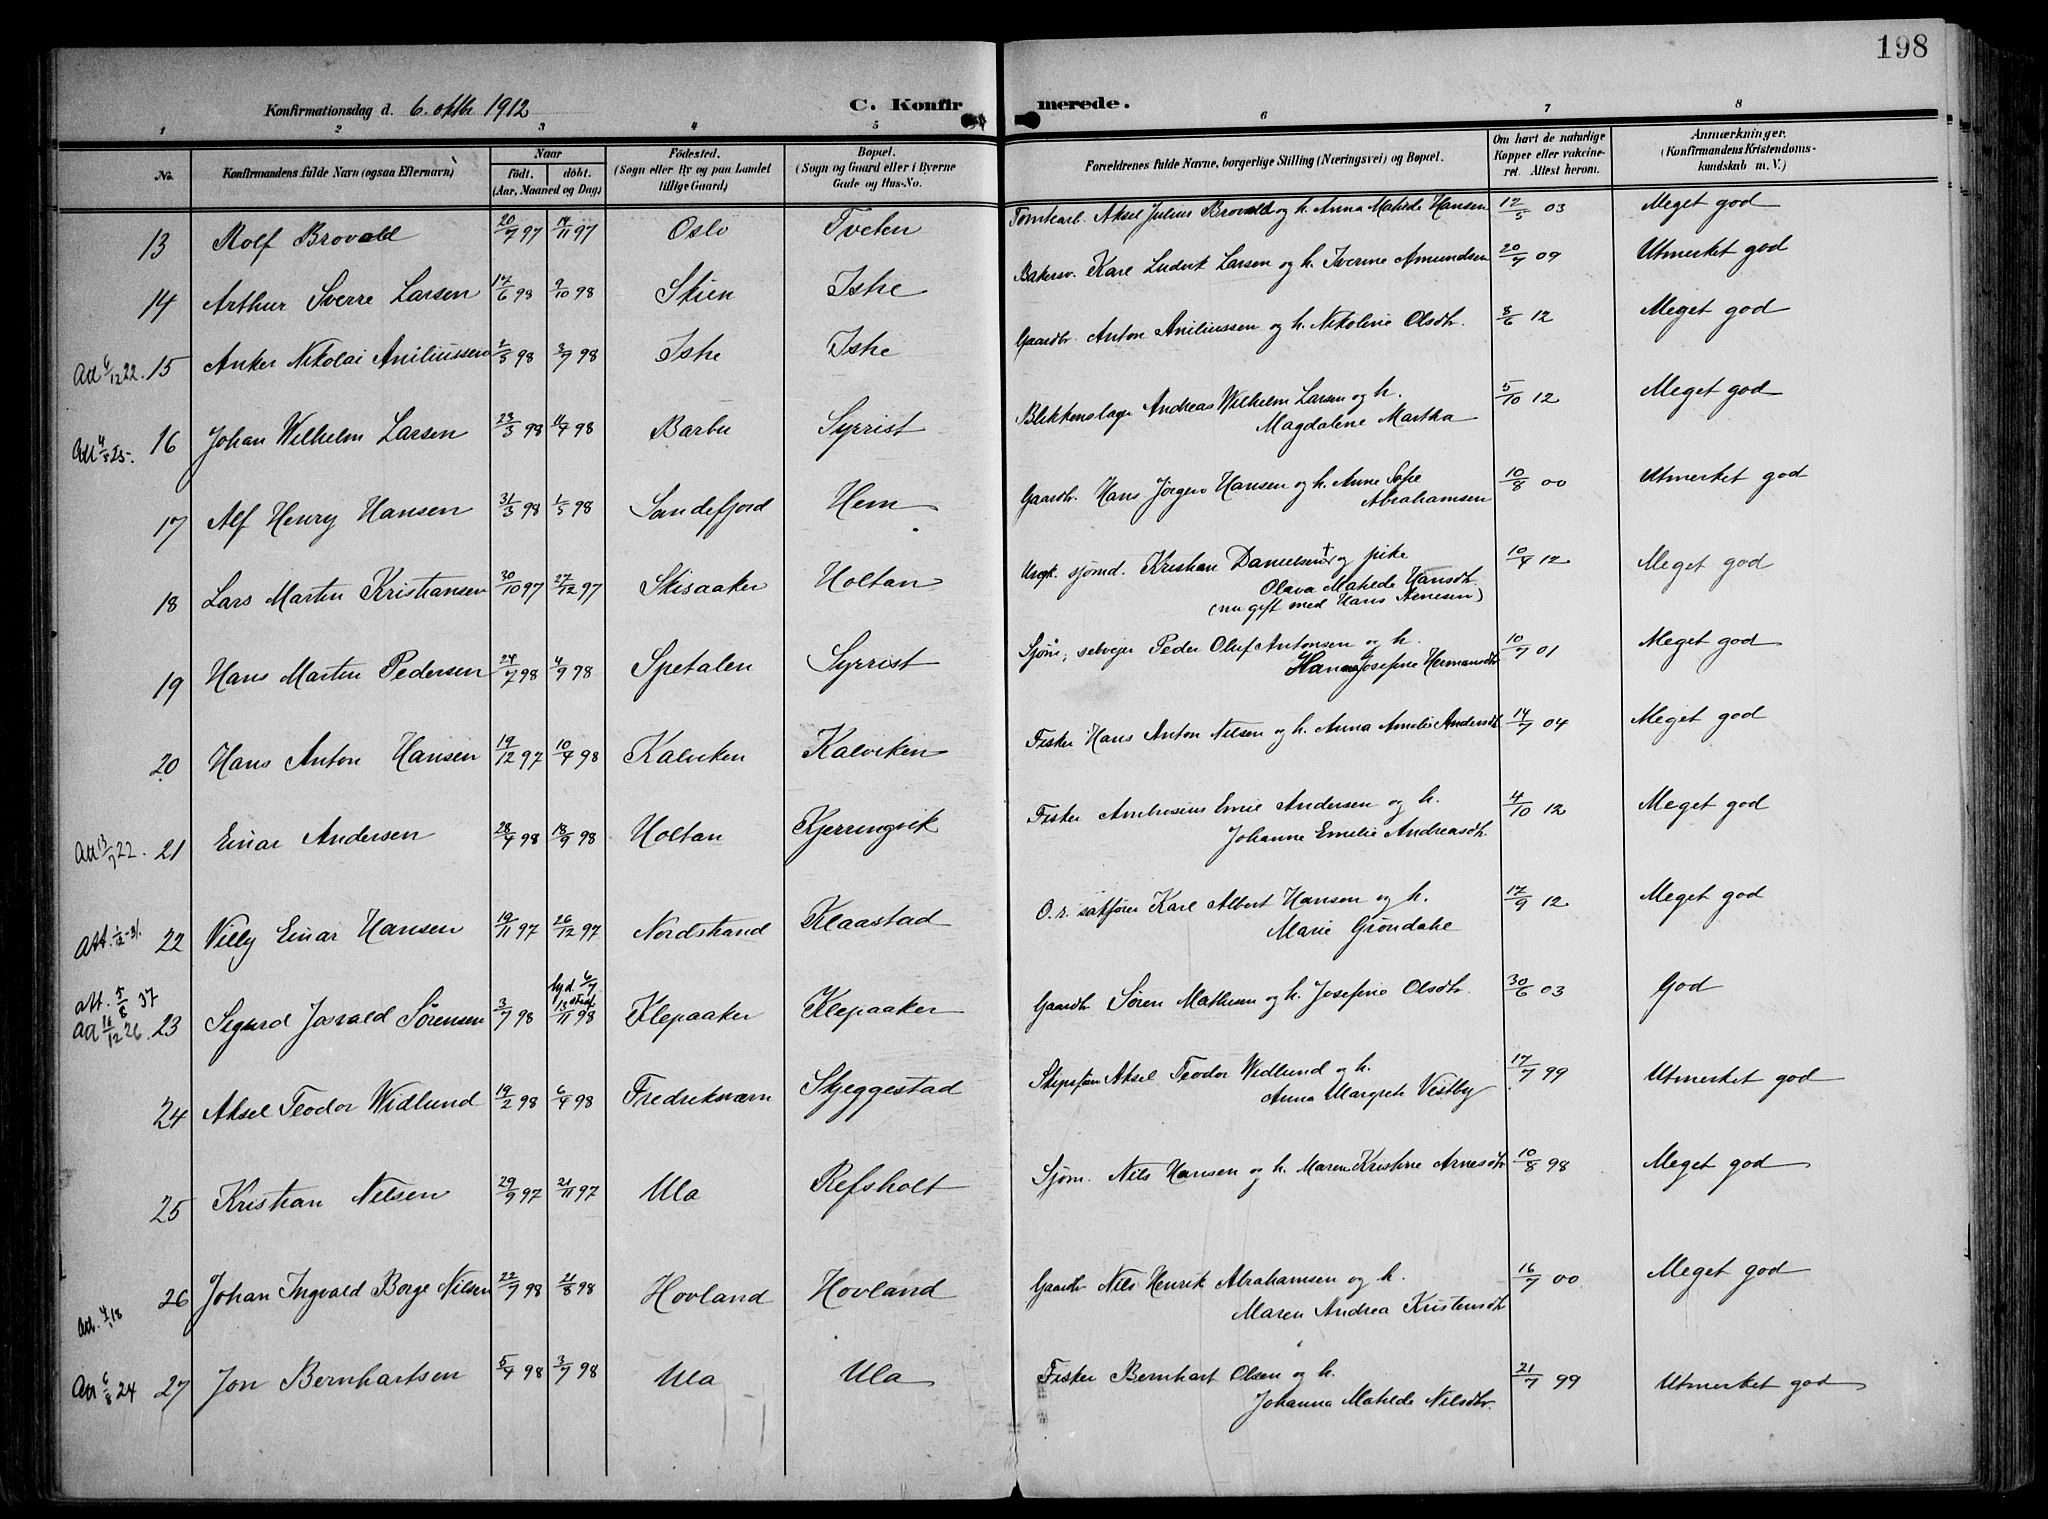 198
Konfirmationsdag d. 6. oktbr 1912
C. Konfirmerede.
1 2 3 4 5 6 7 8
No. Konfirmandens fulde Navn (ogsaa Efternavn) Naar födt. döbt. (Aar, Maaned og Dag) Födested. (Sogn eller By og paa Landet tillige Gaard) Bopæl. (Sogn og Gaard eller i Byerne Gade og Hus-No. Forældrenes fulde Navne, borgerlige Stilling (Næringsvei) og Bopæl. Om havt de naturlige Kopper eller vakcineret. Attest herom. Anmærkninger. (Konfirmandens Kristendomskundskab m. V.)
13 Rolf Brovold 20/7 97 14/11 97 Oslo Tveten Tomtearb. Aksel Julius Brovold og h. Anna Matilde Hansen 12/5 03 Meget god
14 Arthur Sverre Larsen 17/6 98 9/10 98 Skien Istre Bakersv. Karl Ludvik Larsen og h. Iverine Amundsen 20/7 09 Utmerket god
Att 6/12 22. 15 Anker Nikolai Aniliussen 2/5 98 3/7 98 Istre Istre Gaardbr. Anton Aniliussen og h. Nikoline Olsdtr. 8/6 12 Meget god
Att 4/5 25. 16 Johan Wilhelm Larsen 23/3 98 11/4 98 Barbu Syrrist Blikkenslager Andreas Wilhelm Larsen og h. 5/10 12 Meget god
Magdalene Martha
17 Alf Henry Hansen 31/3 98 1/5 98 Sandefjord Hem Gaardbr. Hans Jörgen Hansen og h. Anne Sofie 10/8 00 Utmerket god
Abrahamsen
18 Lars Martin Kristiansen 30/10 97 27/12 97 Skisaaker Holtan Ungk. sjömd. Kristian Danielsen † og pike 10/4 12 Meget god
Olava Matilde Hansdtr.
(nu gift med Hans Arnesen)
19 Hans Martin Pedersen 24/7 98 4/9 98 Spetalen Syrrist Sjöm, selveier Peder Oluf Antonsen og h. 10/7 01 Meget god
Hanna Josefine Hermansdtr
20 Hans Anton Hansen 19/12 97 10/4 98 Kalviken Kalviken Fisker Hans Anton Nilsen og h. Anna Amelie Andersdtr 14/7 04 Meget god
Att 13/7 22. 21 Einar Andersen 28/4 98 18/9 98 Holtan Kjerringvik Fisker Ambrosius Emil Andersen og h. 4/10 12 Meget god
Johanne Emelie Andreasdtr.
Att. 1/12-31. 22 Villy Einar Hansen 19/11 97 26/12 97 Nordstrand Klaastad O.r. sakförer Karl Albert Hansen og h. 17/9 12 Meget god
Marie Gröndahl
att. 5/8 37
Att 16/12 26. 23 Sigurd Josvald Sörensen 3/7 98 hjd. 6/7 13/11 98 Klepaaker Klepaaker Gaardbr Sören Mathisen og h. Josefine Olsdtr. 30/6 03 God
24 Aksel Teodor Widlund 19/2 98 6/4 98 Fredriksværn Skjeggestad Skipsförer Aksel Teodor Widlund og h. 17/7 99 Utmerket god
Anna Margrete Vestby
25 Kristian Nilsen 29/9 97 21/11 97 Ula Refsholt Sjöm. Nils Hansen og h. Maren Kristine Arnesdtr 10/8 98 Meget god
26 Johan Ingvald Borge Nilsen 22/7 98 21/8 98 Hovland Hovland Gaardbr Nils Henrik Abrahamsen og h. 16/7 00 Meget god
Att. 4/1 18 Maren Andrea Kristensdtr
Att 6/8 24 27 Jon Bernhartsen 5/4 98 3/7 98 Ula Ula Fisker Bernhart Olsen og h. 21/7 99 Utmerket god
Johanna Matilde Nilsdtr.